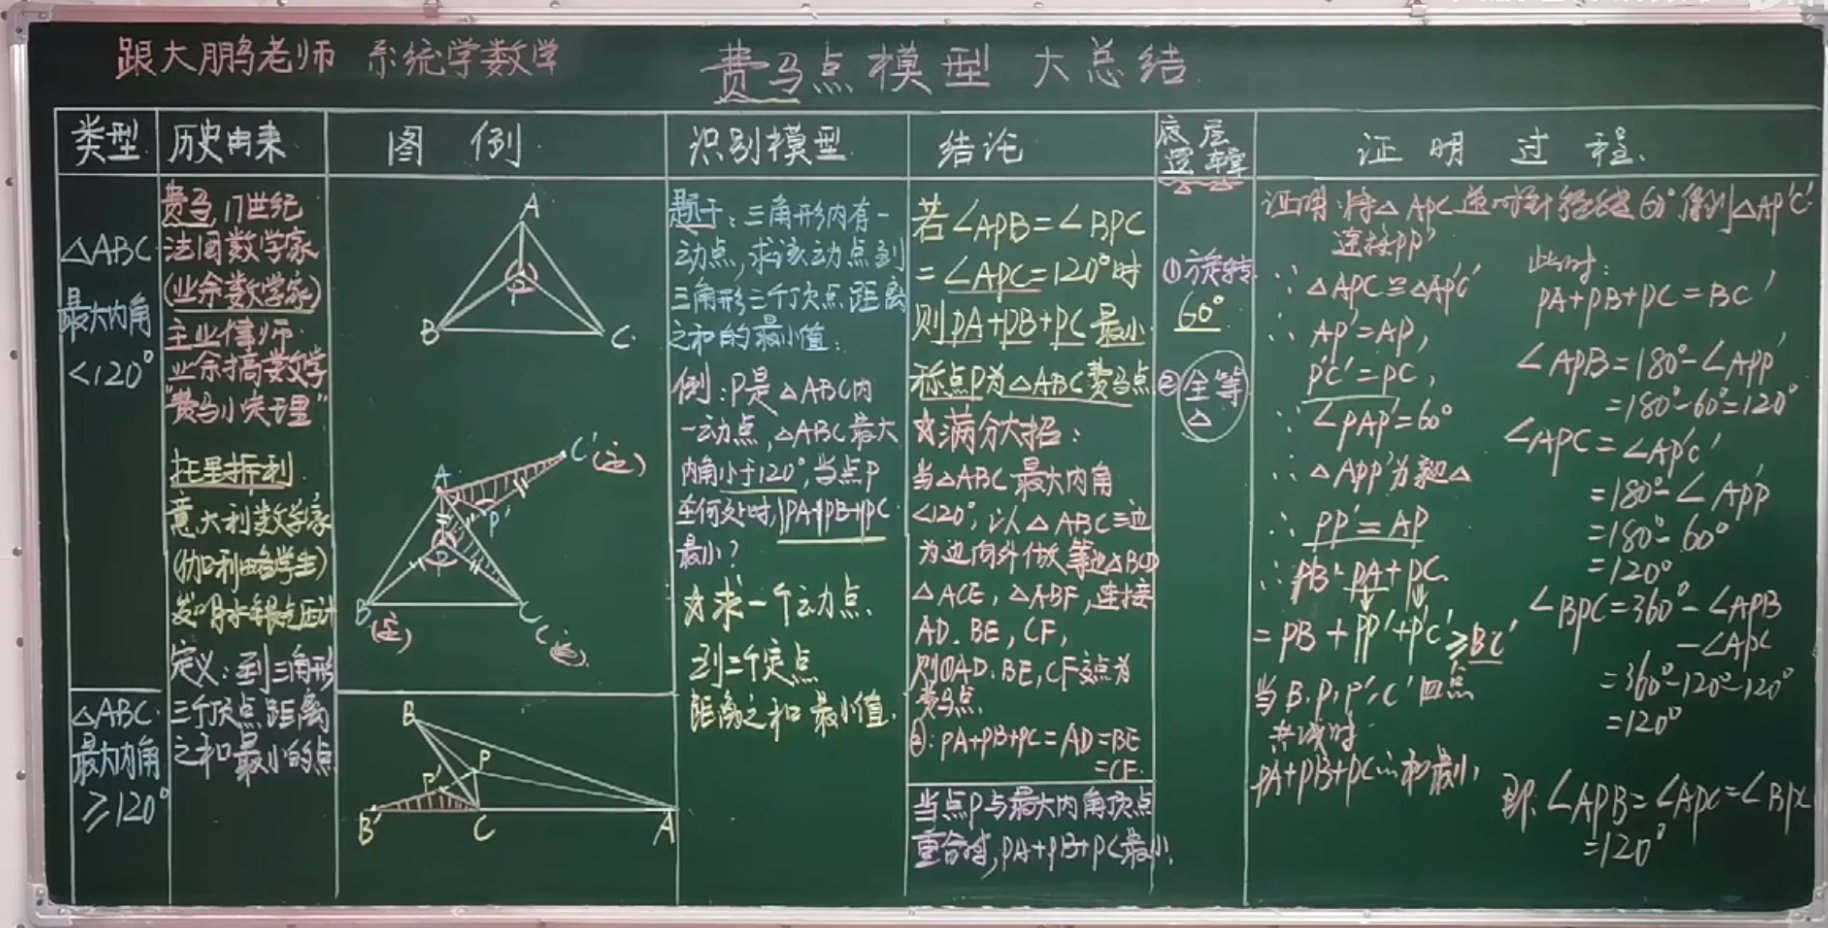 跟大鹏老师 系统学数学
费马点模型 大总结
类型
历史由来
图例
识别模型
结论
底层逻辑
证明过程
△ABC
最大内角
<120°
费马 17世纪
法国数学家
(业余数学家)
主业律师
业余搞数学
"费马小定理"
托里拆利
意大利数学家
(伽利略学生)
发明水银气压计
定义:到三角形
三个顶点距离
之和最小的点
A
P
B
C
A
C'(定)
P'
P
B
(定)
C
题干:三角形内有一
动点,求该动点到
三角形三个顶点距离
之和的最小值:
例:P是△ABC内
一动点,△ABC最大
内角小于120°,当点P
在何处时,PA+PB+PC
最小?
☆求一个动点
到三个定点
距离之和最小值.
若∠APB=∠BPC
=∠APC=120°时
则PA+PB+PC最小
称点P为△ABC费马点
☆满分大招:
当△ABC最大内角
<120°,以△ABC三边
为边向外做等边△BCD
△ACE,△ABF,连接
AD.BE,CF,
则①AD.BE,CF交点为
费马点
②:PA+PB+PC=AD=BE
=CF.
①旋转
60°
②全等
△
证明:将△APC逆时针旋转60°得到△AP'C'
连接PP'
∵△APC≌△AP'C'
∴AP'=AP,
P'C'=PC,
∵∠PAP'=60°
∴△APP'为等边△
∴PP'=AP
∴PB+PA+PC
=PB+PP'+P'C'≥BC'
当B.P,P',C'四点
共线时
PA+PB+PC的和最小,
此时:
PA+PB+PC=BC'
∠APB=180°-∠APP'
=180°-60°=120°
∠APC=∠AP'C'
=180°-∠APP'
=180°-60°
=120°
∠BPC=360°-∠APB
-∠APC
=360°-120°-120°
=120°
即:∠APB=∠APC=∠BPC
=120°
△ABC
最大内角
≥120°
B
P
P'
B'
C
A
当点P与最大内角顶点
重合时,PA+PB+PC最小.